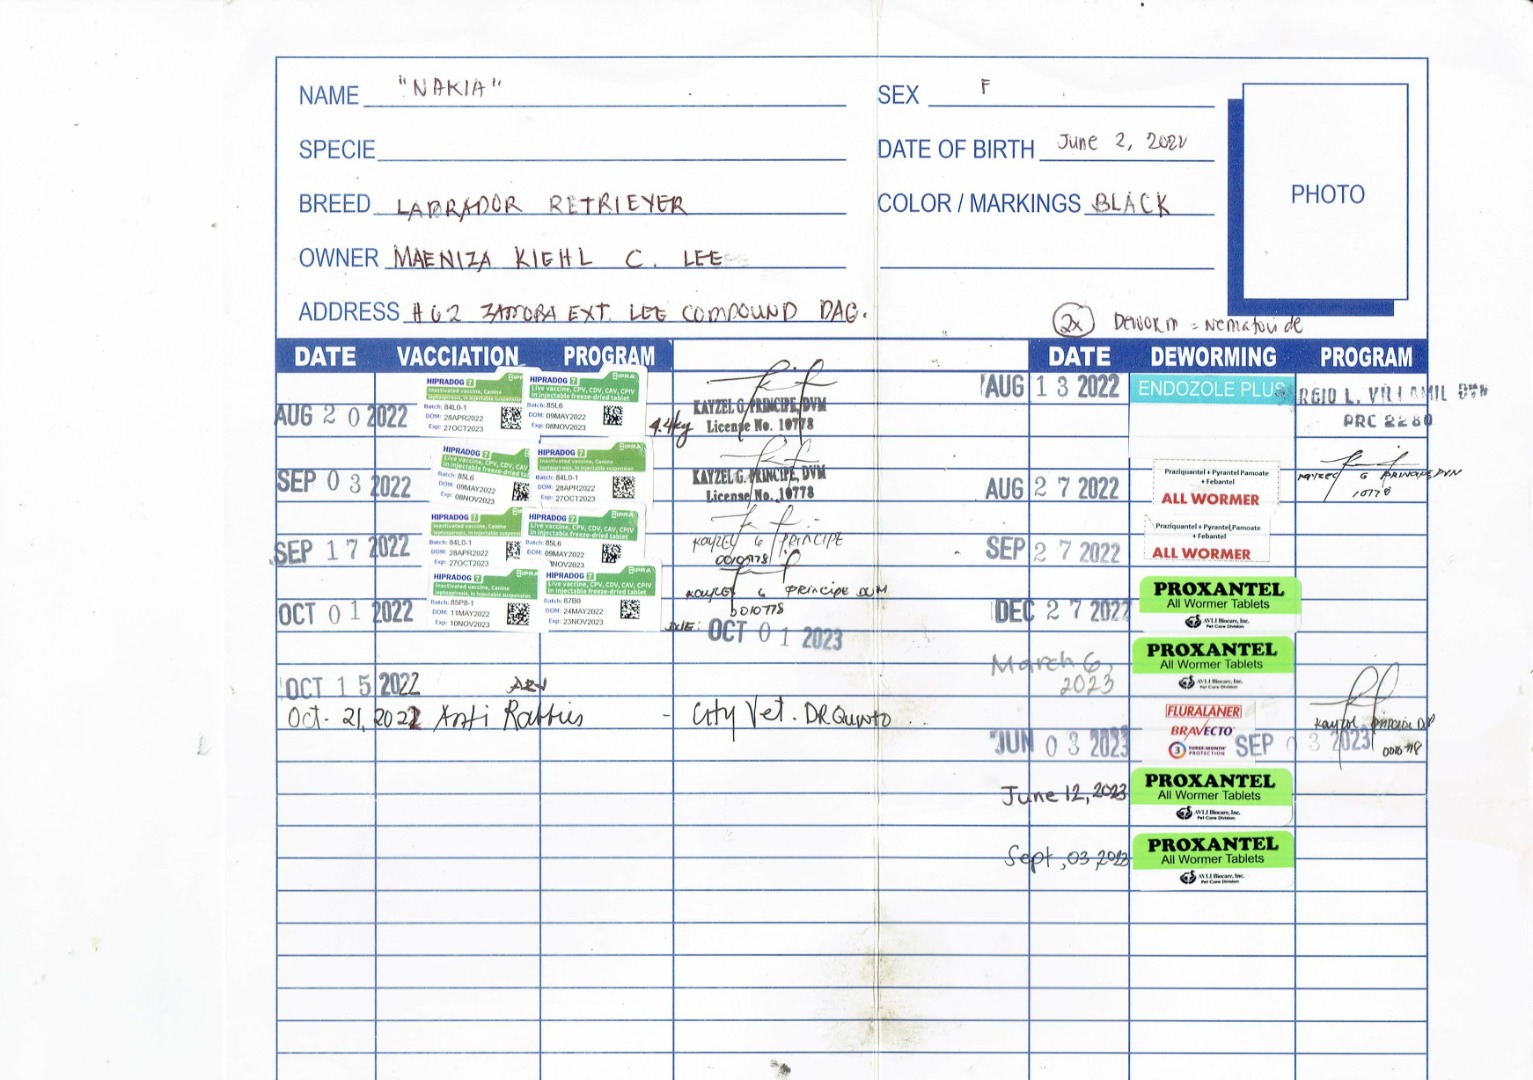 NAME "NAKIA"
SEX F
SPECIE
DATE OF BIRTH June 2, 2022
BREED LABRADOR RETRIEVER
COLOR / MARKINGS BLACK
PHOTO
OWNER MAENIZA KIEHL C. LEE
ADDRESS #62 ZAMORA EXT. LEE COMPOUND DAG.
2x Deworm = Nematocide
DATE VACCIATION PROGRAM
DATE DEWORMING PROGRAM
AUG 20 2022
HIPRADOG 7
Inactivated vaccine, Canine
leptospirosis, in injectable suspension
Batch: 84L0-1
DOM: 28APR2022
Exp: 27OCT2023
HIPRADOG 7 HIPRA
Live vaccine, CPV, CDV, CAV, CPIV
in injectable freeze-dried tablet
Batch: 85L6
DOM: 09MAY2022
Exp: 08NOV2023
4.4kg
KAYZEL G. PRINCIPE, DVM
License No. 10778
SEP 03 2022
HIPRADOG 7
Live vaccine, CPV, CDV, CAV
in injectable freeze-dried
Batch: 85L6
DOM: 09MAY2022
Exp: 08NOV2023
HIPRADOG 7 HIPRA
Inactivated vaccine, Canine
leptospirosis, in injectable suspension
Batch: 84L0-1
DOM: 28APR2022
Exp: 27OCT2023
KAYZEL G. PRINCIPE, DVM
License No. 10778
SEP 17 2022
HIPRADOG 7
Inactivated vaccine, Canine
leptospirosis, in injectable suspension
Batch: 84L0-1
DOM: 28APR2022
Exp: 27OCT2023
HIPRADOG 7 HIPRA
Live vaccine, CPV, CDV, CAV, CPIV
in injectable freeze-dried tablet
Batch: 85L6
DOM: 09MAY2022
NOV2023
KAYZEL G PRINCIPE
0010778
OCT 01 2022
HIPRADOG 7 HIPRA
Inactivated vaccine, Canine
leptospirosis, in injectable suspension
Batch: 85P8-1
DOM: 11MAY2022
Exp: 10NOV2023
HIPRADOG 7 HIPRA
Live vaccine, CPV, CDV, CAV, CPIV
in injectable freeze-dried tablet
Batch: 87B0
DOM: 24MAY2022
Exp: 23NOV2023
Kayzel G Principe DVM
0010778
DUE: OCT 01 2023
OCT 15 2022 ARV
Oct. 21, 2022 Anti Rabbies - City Vet. DR Quinto
AUG 13 2022 ENDOZOLE PLUS RGIO L. VILLAMIL DVM
PRC 2280
AUG 27 2022
Praziquantel + Pyrantel Pamoate
+ Febantel
ALL WORMER
Kayzel G PRINCIPE, DVM
10778
SEP 27 2022
Praziquantel + Pyrantel Pamoate
+ Febantel
ALL WORMER
DEC 27 2022
PROXANTEL
All Wormer Tablets
AVLI Biocare, Inc.
Pet Care Division
March 6, 2023
PROXANTEL
All Wormer Tablets
AVLI Biocare, Inc.
Pet Care Division
JUN 03 2023
FLURALANER
BRAVECTO
3 THREE-MONTH
PROTECTION
SEP 03 2023
Kayzel Principe DVM
0010778
June 12, 2023
PROXANTEL
All Wormer Tablets
AVLI Biocare, Inc.
Pet Care Division
Sept, 03, 2023
PROXANTEL
All Wormer Tablets
AVLI Biocare, Inc.
Pet Care Division